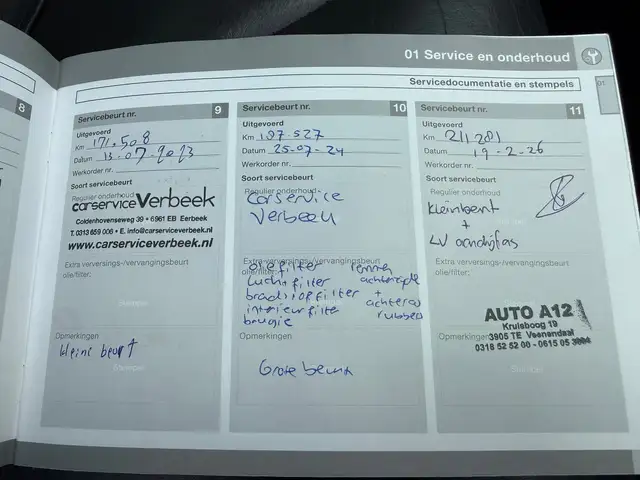 01 Service en onderhoud
Servicedocumentatie en stempels
01
8
Servicebeurt nr. 9
Uitgevoerd
Km 171.508
Datum 13-07-2023
Werkorder nr.
Soort servicebeurt
Regulier onderhoud
carservice Verbeek
Coldenhovenseweg 39 • 6961 EB Eerbeek
T. 0313 659 006 • E. info@carserviceverbeek.nl
www.carserviceverbeek.nl
Extra verversings-/vervangingsbeurt
olie/filter:
Opmerkingen
kleine beurt
Servicebeurt nr. 10
Uitgevoerd
Km 197.527
Datum 25-07-24
Werkorder nr.
Soort servicebeurt
Regulier onderhoud
Carservice
Verbeek
Extra verversings-/vervangingsbeurt
olie/filter:
olie filter remmen
luchtfilter
brandstoffilter +
interieurfilter
bougie rubbers
Opmerkingen
Grote beurt
Servicebeurt nr. 11
Uitgevoerd
Km 211281
Datum 19-2-26
Werkorder nr.
Soort servicebeurt
Regulier onderhoud
+
LV
Extra verversings-/vervangingsbeurt
olie/filter:
AUTO A12
Kruisboog 19
3905 TE Veenendaal
Opmerkingen
0318 52 52 00 - 0615 05